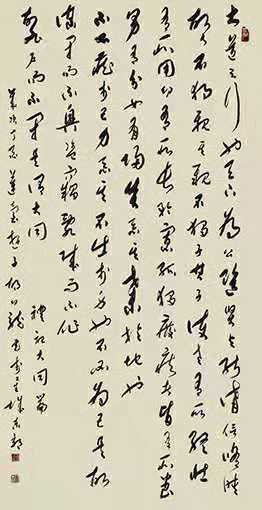 大道之行也天下為公選賢與能講信修睦
故人不獨親其親不獨子其子使老有所終壯
有所用幼有所長矜寡孤獨廢疾者皆有所養
男有分女有歸貨惡其棄於地也
不必藏於己力惡其不出於身也不必為己是故
謀閉而不興盜竊亂賊而不作
故外戶而不閉是謂大同 禮記大同篇
歲次丁亥